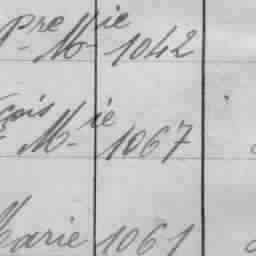 pre Mie
M- 1042
çois
Mie 1067
Marie 1061